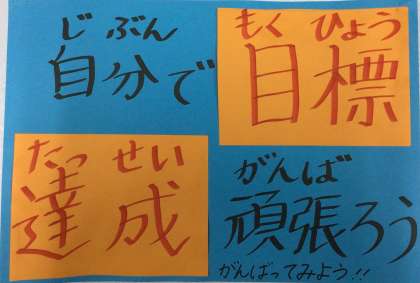 じぶん
自分で
もくひょう
目標
たっせい
達成
がんば
頑張ろう
がんばってみよう!!